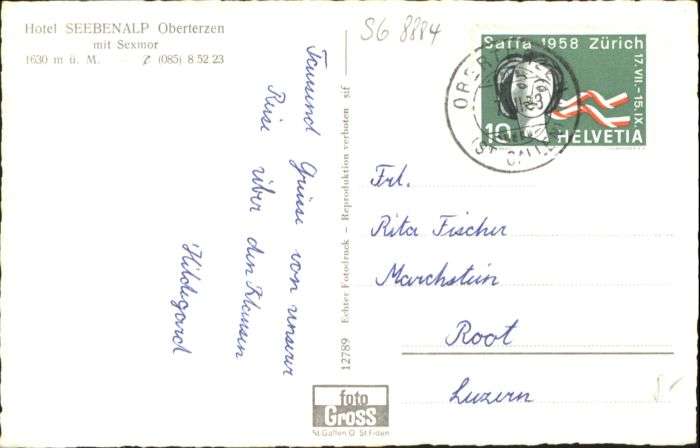 Hotel SEEBENALP Oberterzen
mit Sexmor
1630 m ü. M. (085) 8 52 23
SG 8884
Saffa 1958 Zürich
17.VII.-15.IX.
10 HELVETIA
OBERTERZEN
(ST. GALLEN)
Tausend Grüsse von unserer
Reise über den Klausen
Hildegard
12789 Echter Fotodruck - Reproduktion verboten sif
Frl.
Rita Fischer
Marchstein
Root
Luzern
foto
Gross
St. Gallen O St. Fiden